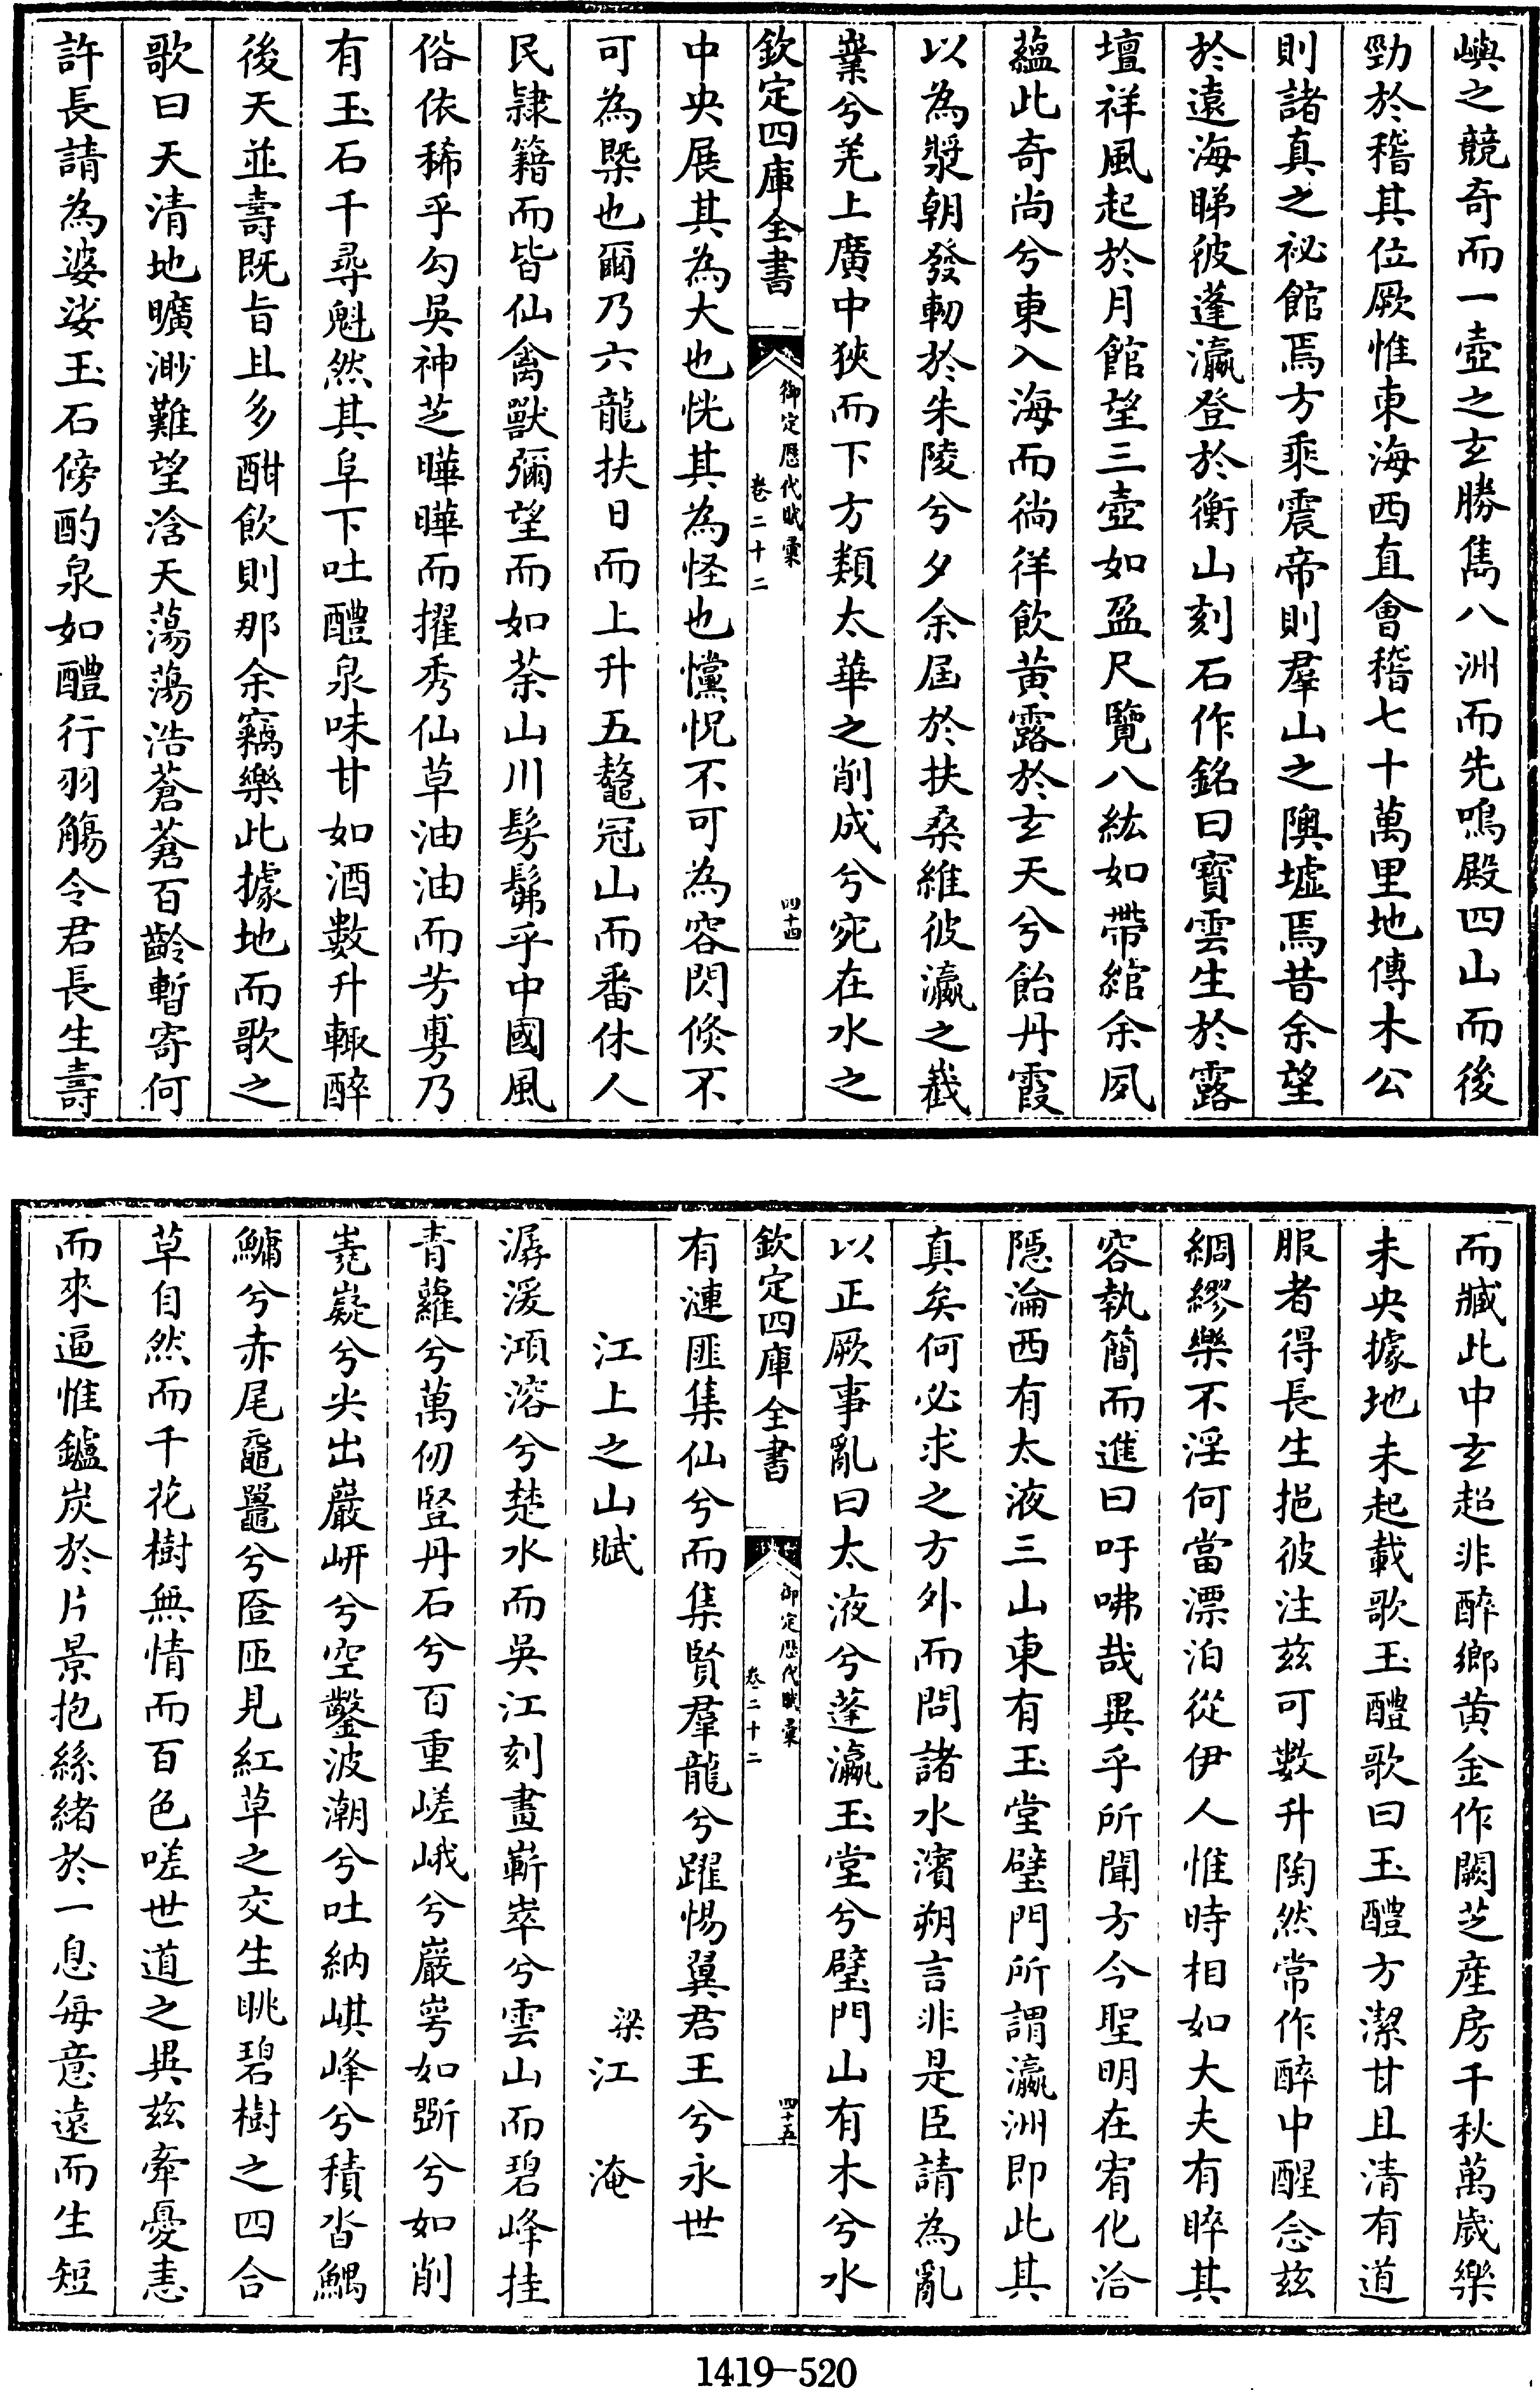 嶼之競奇而一壺之玄勝雋八洲而先鳴殿四山而後
勁於稽其位厥惟東海西直會稽七十萬里地傳木公
則諸真之祕館焉方乘震帝則羣山之隩墟焉昔余望
於遠海睇彼蓬瀛登於衡山刻石作銘曰寶雲生於露
壇祥風起於月館望三壺如盈尺覽八紘如帶綰余夙
蘊此奇尚兮東入海而徜徉飲黄露於玄天兮飴丹霞
以為漿朝發軔於朱陵兮夕余屆於扶桑維彼瀛之巀
嶪兮羌上廣中狹而下方類太華之削成兮宛在水之
欽定四庫全書
御定歷代賦彙
卷二十二
四十四
中央展其為大也恍其為怪也戃怳不可為容閃倏不
可為槩也爾乃六龍扶日而上升五鼇冠山而番休人
民隸籍而皆仙禽獸彌望而如荼山川髣髴乎中國風
俗依稀乎勾吳神芝曄曄而擢秀仙草油油而芳旉乃
有玉石千尋魁然其阜下吐醴泉味甘如酒數升輙醉
後天並壽既旨且多酣飲則那余竊樂此據地而歌之
歌曰天清地曠渺難望洽天蕩蕩浩蒼蒼百齡暫寄何
許長請為婆娑玉石傍酌泉如醴行羽觴令君長生壽
而臧此中玄超非醉鄉黄金作闕芝産房千秋萬歲樂
未央據地未起載歌玉醴歌曰玉醴方潔甘且清有道
服者得長生挹彼注兹可數升陶然常作醉中醒念兹
綢繆樂不淫何當漂泊從伊人惟時相如大夫有睟其
容執簡而進曰吁咈哉異乎所聞方今聖明在宥化洽
隱淪西有太液三山東有玉堂璧門所謂瀛洲即此其
真矣何必求之方外而問諸水濱朔言非是臣請為亂
以正厥事亂曰太液兮蓬瀛玉堂兮璧門山有木兮水
欽定四庫全書
御定歷代賦彙
卷二十二
四十五
有漣匪集仙兮而集賢羣龍兮躍惕翼君王兮永世
江上之山賦
梁江淹
潺湲澒溶兮楚水而吳江刻畫嶄崒兮雲山而碧峰挂
青蘿兮萬仞豎丹石兮百重嵯峨兮巖崿如斵兮如削
嶤嶷兮尖出巖岍兮空鑿波潮兮吐納嵄峰兮積沓鰅
鱅兮赤尾黿鼉兮匼匝見紅草之交生眺碧樹之四合
草自然而千花樹無情而百色嗟世道之異兹牽憂恚
而來逼惟鑪炭於片景抱絲緒於一息每意遠而生短
1419-520